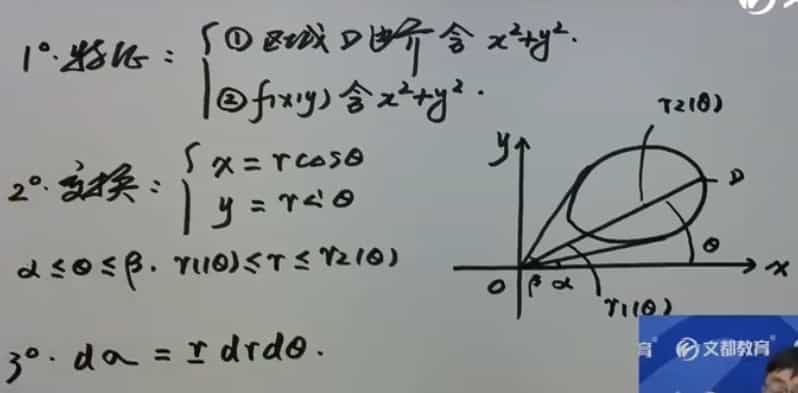 1°. 特征： { ① 区域 D 边界含 x²+y².
② f(x,y) 含 x²+y².
2°. 变换： { x = r cosθ
y = r sinθ
α ≤ θ ≤ β. r1(θ) ≤ r ≤ r2(θ)
3°. dσ = r dr dθ.
r2(θ)
y
D
θ
x
O β α
r1(θ)
育® 文都教育®